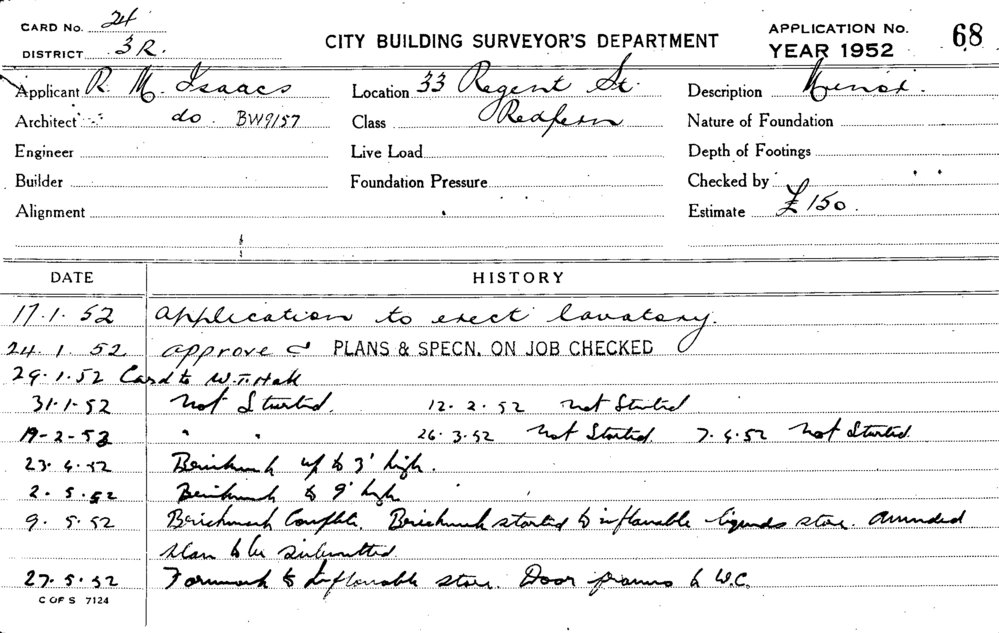 CARD No. 24
DISTRICT 3R.
CITY BUILDING SURVEYOR'S DEPARTMENT
APPLICATION No. 68
YEAR 1952
Applicant R. M. Isaacs
Location 33 Regent St.
Description Minor.
Architect do. BW9157
Class Redfern
Nature of Foundation
Engineer
Live Load
Depth of Footings
Builder
Foundation Pressure
Checked by
Alignment
Estimate £150.
DATE HISTORY
17.1.52 Application to erect lavatory.
24.1.52. approved PLANS & SPECN. ON JOB CHECKED
29.1.52 Card to W.T. Hall
31-1-52 Not Started. 12.2.52 Not Started
19-2-52 " " 26.3.52 Not Started 7.4.52 Not Started
23.4.52 Brickwork up to 3' high.
2.5.52 Brickwork to 9' high
9.5.52 Brickwork Complete. Brickwork started to inflamable liquids store. Amended
plan to be submitted
27.5.52 Formwork to Inflamable store. Door frames to W.C.
C OF S 7124